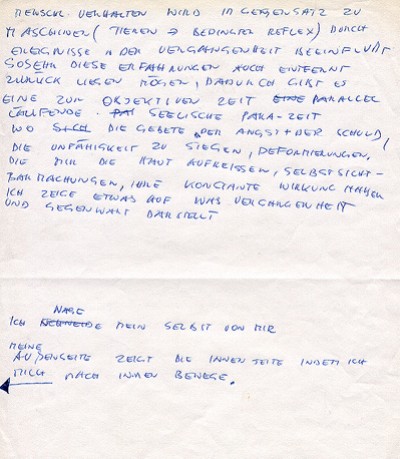 MENSCHL. VERHALTEN WIRD IM GEGENSATZ ZU
MASCHINEN (TIEREN → BEDINGTER REFLEX) DURCH
EREIGNISSE IN DER VERGANGENHEIT BEEINFLUßT
SOSEHR DIESE ERFAHRUNGEN AUCH ENTFERNT
ZURÜCK LIEGEN MÖGEN, DADURCH GIBT ES
EINE ZUR OBJEKTIVEN ZEIT EINE PARALLEL
LAUFENDE SEELISCHE PARA-ZEIT
WO SICH DIE GEBETE DER ANGST + DER SCHULD,
DIE UNFÄHIGKEIT ZU SIEGEN, DEFORMIERUNGEN,
DIE MIR DIE HAUT AUFREISSEN, SELBSTSICHT-
BARMACHUNGEN, IHRE KONSTANTE WIRKUNG HABEN
ICH ZEIGE ETWAS AUF WAS VERGANGENHEIT
UND GEGENWART DARSTELLT
NABE
ICH SCHNEIDE MEIN SELBST VON MIR
MEINE
AUßENSEITE ZEIGT DIE INNENSEITE INDEM ICH
MICH NACH INNEN BEWEGE.